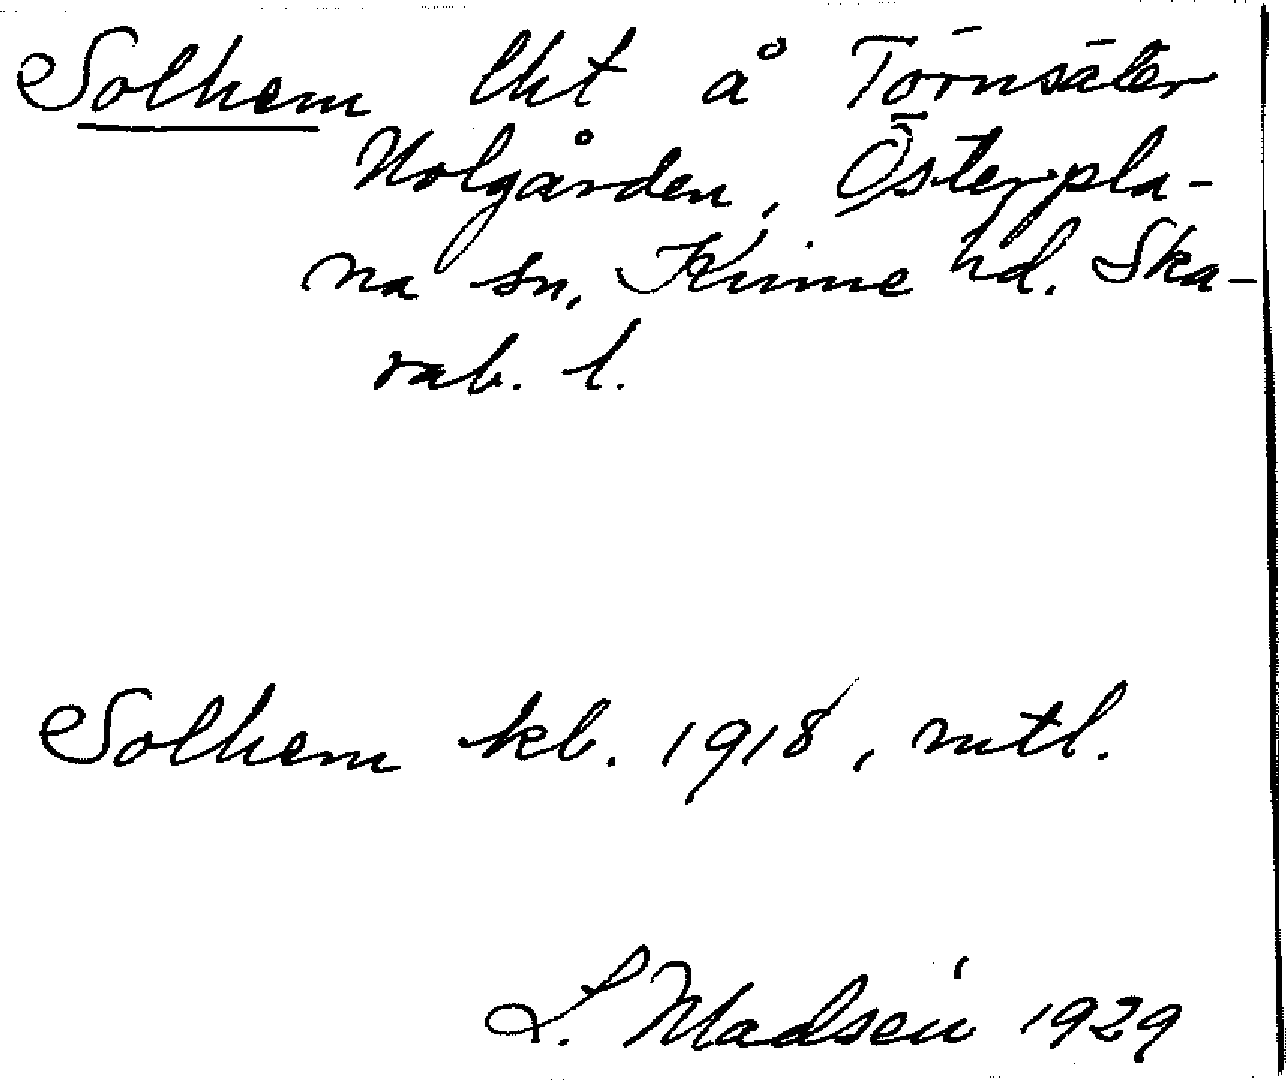 Solhem lht å Törnsäter
Nolgården, Österpla-
na sn, Kinne hd. Ska-
rab. l.
Solhem kb. 1918, mtl.
L. Madsén 1929